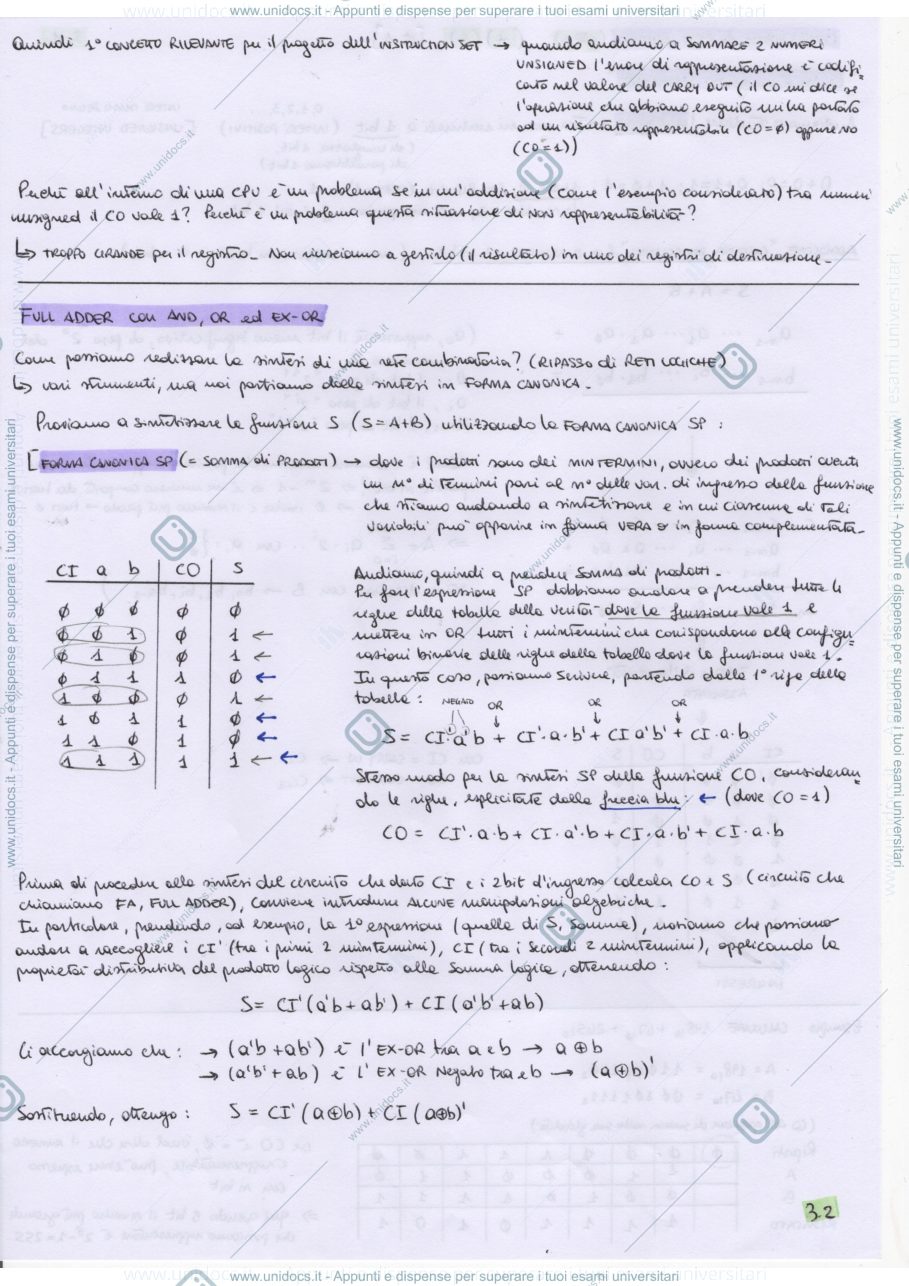 www.unidocs.it - Appunti e dispense per superare i tuoi esami universitari
Quindi 1° CONCETTO RILEVANTE per il progetto dell'INSTRUCTION SET → quando andiamo a SOMMARE 2 NUMERI
UNSIGNED l'errore di rappresentazione è codifi=
cato nel valore del CARRY OUT (il CO mi dice se
l'operazione che abbiamo eseguito mi ha portato
ad un risultato rappresentabile (CO=φ) oppure no
(CO=1))
Perché all'interno di una CPU è un problema se in un'addizione (come l'esempio considerato) tra numeri
unsigned il CO vale 1? Perché è un problema questa situazione di NON rappresentabilità?
↳ TROPPO GRANDE per il registro_ Non riusciamo a gestirlo (il risultato) in uno dei registri di destinazione_
FULL ADDER con AND, OR ed EX-OR
Come possiamo realizzare la sintesi di una rete combinatoria? (RIPASSO di RETI LOGICHE)
↳ vari strumenti, ma noi partiamo dalla sintesi in FORMA CANONICA.
Proviamo a sintetizzare la funzione S (S=A+B) utilizzando la FORMA CANONICA SP :
[FORMA CANONICA SP (= SOMMA di PRODOTTI) → dove i prodotti sono dei MINTERMINI, ovvero dei prodotti aventi
un n° di termini pari al n° delle var. di ingresso della funzione
che stiamo andando a sintetizzare e in cui ciascuna di tali
variabili può apparire in forma VERA o in forma complementata_
CI a b CO S
φ φ φ φ φ
φ φ 1 φ 1 ←
φ 1 φ φ 1 ←
φ 1 1 1 φ ←
1 φ φ φ 1 ←
1 φ 1 1 φ ←
1 1 φ 1 φ ←
1 1 1 1 1 ← ←
Andiamo, quindi a prendere somma di prodotti.
Per fare l'espressione SP dobbiamo andare a prendere tutte le
righe della tabella della verità dove la funzione vale 1 e
mettere in OR tutti i mintermini che corrispondono alle configu=
razioni binarie delle righe della tabella dove la funzione vale 1.
In questo caso, possiamo scrivere, partendo dalla 1° riga della
tabella :
NEGATO OR OR OR
S= CI'·a'b + CI'·a·b' + CI a'b' + CI·a·b
Stesso modo per la sintesi SP della funzione CO, consideran=
do le righe, esplicitate dalla freccia blu: ← (dove CO=1)
CO = CI'·a·b + CI·a'·b + CI·a·b' + CI·a·b
Prima di procedere alla sintesi del circuito che dato CI e i 2bit d'ingresso calcola CO e S (circuito che
chiamiamo FA, FULL ADDER), conviene introdurre ALCUNE manipolazioni algebriche.
In particolare, prendendo, ad esempio, la 1° espressione (quella di S, Somma), notiamo che possiamo
andare a raccogliere i CI' (tra i primi 2 mintermini), CI (tra i secondi 2 mintermini), applicando la
proprietà distributiva del prodotto logico rispetto alla somma logica, ottenendo :
S= CI'(a'b+ab') + CI(a'b'+ab)
Ci accorgiamo che : → (a'b+ab') è l'EX-OR tra a e b → a⊕b
→ (a'b'+ab) è l'EX-OR Negato tra e b → (a⊕b)'
Sostituendo, ottengo : S = CI'(a⊕b) + CI(a⊕b)'
3.2
www.unidocs.it - Appunti e dispense per superare i tuoi esami universitari